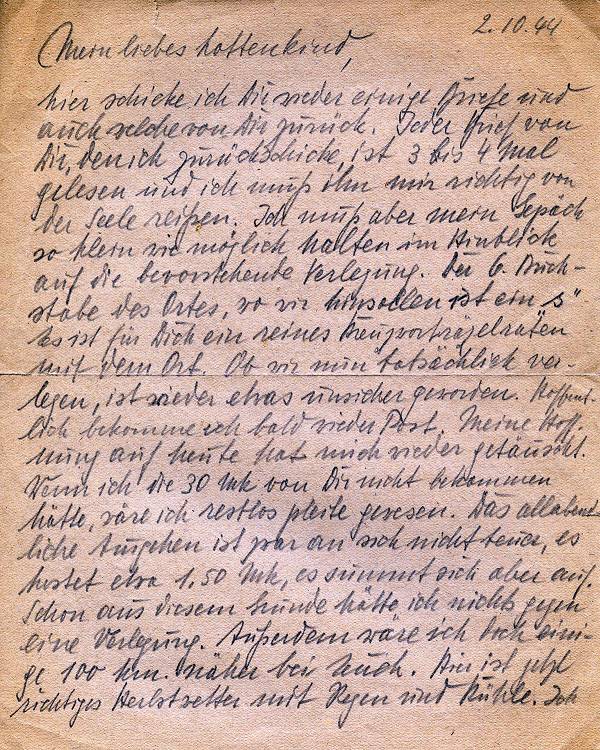 2.10.44
Mein liebes Lottenkind,
hier schicke ich Dir wieder einige Briefe und
auch welche von Dir zurück. Jeder Brief von
Dir, den ich zurückschicke, ist 3 bis 4 mal
gelesen und ich muß ihn mir richtig von
der Seele reißen. Ich muß aber mein Gepäck
so klein wie möglich halten im Hinblick
auf die bevorstehende Verlegung. Der 6. Buch-
stabe des Ortes, wo wir hinsollen ist ein "s"
Es ist für Dich ein reines Kreuzworträtselraten
mit dem Ort. Ob wir nun tatsächlich ver-
legen, ist wieder etwas unsicher geworden. Hoffent-
lich bekomme ich bald wieder Post. Meine Hoff-
nung auf heute hat mich wieder getäuscht.
Wenn ich die 30 Mk von Dir nicht bekommen
hätte, wäre ich restlos pleite gewesen. Das allabend-
liche Ausgehen ist zwar an sich nicht teuer, es
kostet etwa 1.50 Mk, es summt sich aber auf.
Schon aus diesem Grunde hätte ich nichts gegen
eine Verlegung. Außerdem wäre ich doch eini-
ge 100 km. näher bei Euch. Hier ist jetzt
richtiges Herbstwetter mit Regen und Kühle. Ich